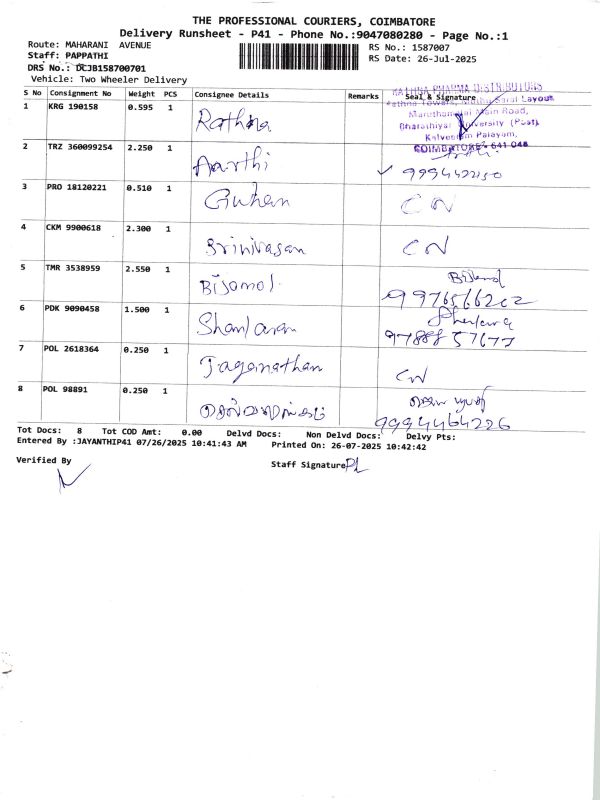 THE PROFESSIONAL COURIERS, COIMBATORE
Delivery Runsheet - P41 - Phone No.:9047080280 - Page No.:1
Route: MAHARANI AVENUE
RS No.: 1587007
Staff: PAPPATHI
RS Date: 26-Jul-2025
DRS No.: DCJB158700701
Vehicle: Two Wheeler Delivery
S No Consignment No Weight PCS Consignee Details Remarks Seal & Signature
1 KRG 190158 0.595 1 Rathna
RATHNA PHARMA DISTRIBUTORS
Rathna Towers, Layout
Maruthamalai Main Road,
Bharathiyar University (Post)
Kalveeram Palayam,
COIMBATORE - 641 046
2 TRZ 360099254 2.250 1 Aarthi
3 PRO 18120221 0.510 1 Guhan CN
4 CKM 9900618 2.300 1 Srinivasan CN
5 TMR 3538959 2.550 1 Bijomol
6 PDK 9090458 1.500 1
7 POL 2618364 0.250 1 Jaganathan CN
8 POL 98891 0.250 1
9994464226
Tot Docs: 8 Tot COD Amt: 0.00 Delvd Docs: Non Delvd Docs: Delvy Pts:
Entered By :JAYANTHIP41 07/26/2025 10:41:43 AM Printed On: 26-07-2025 10:42:42
Verified By
Staff Signature